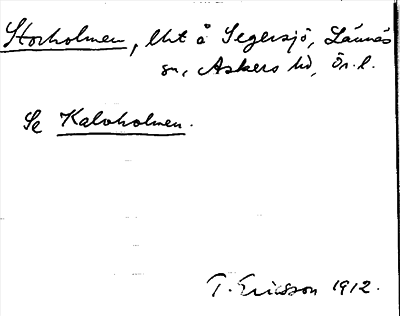 Storholmen, lht å Segersjö, Lännäs
sn, Askers hd, Ör. l.
Se Kalvholmen.
T. Ericsson 1912.